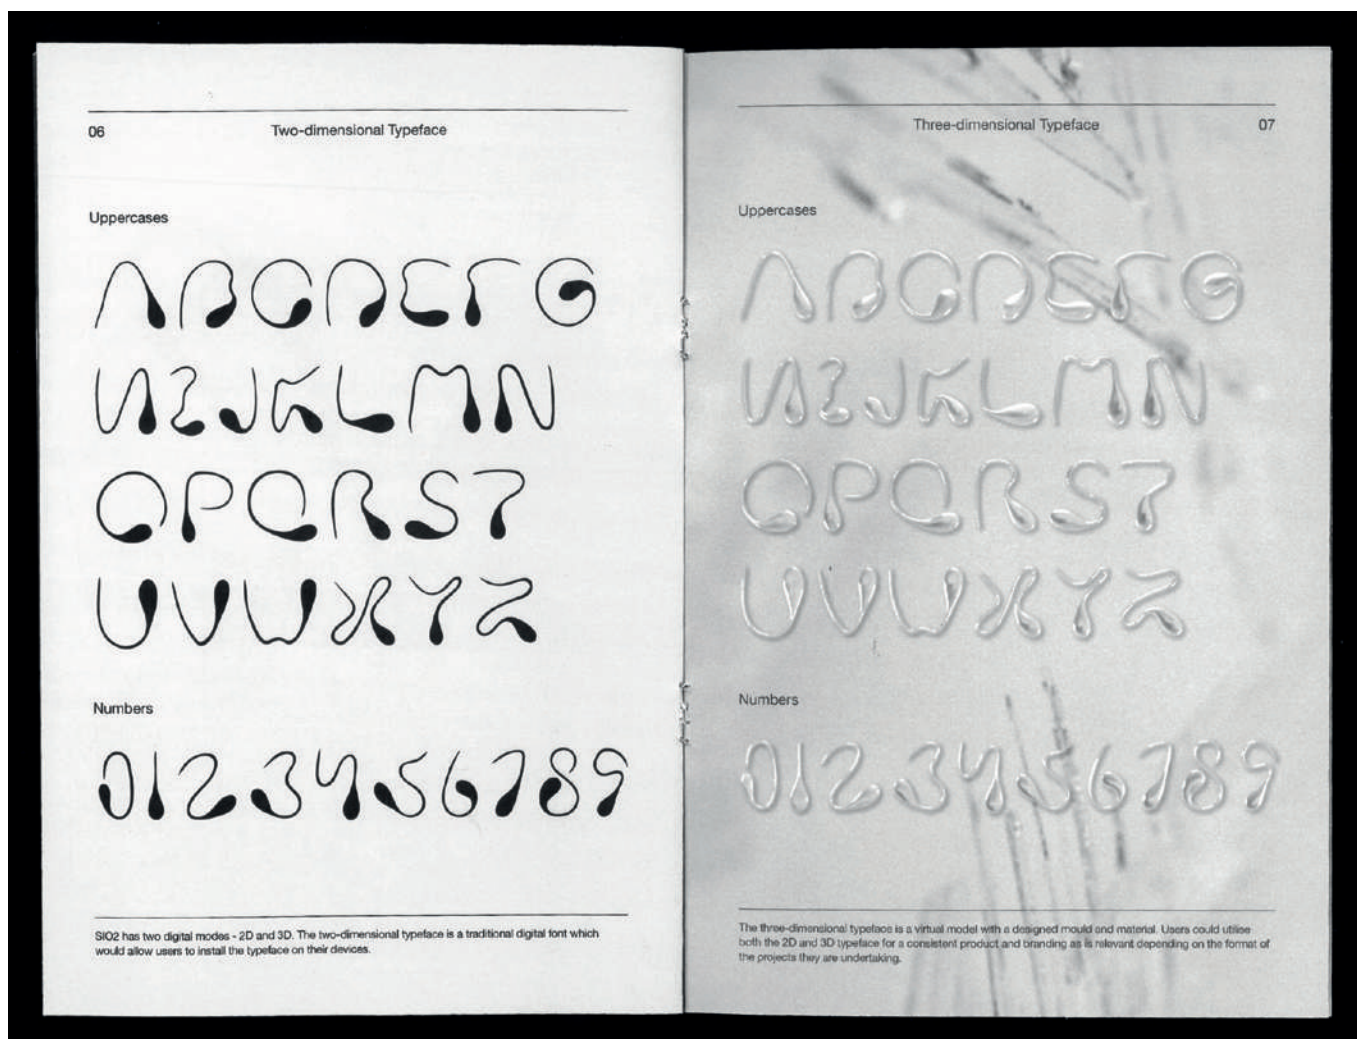 06
Two-dimensional Typeface
Uppercases
ABCDEFG
HIJKLMN
OPQRST
UVWXYZ
Numbers
0123456789
SIO2 has two digital modes - 2D and 3D. The two-dimensional typeface is a traditional digital font which
would allow users to install the typeface on their devices.
Three-dimensional Typeface
07
Uppercases
ABCDEFG
HIJKLMN
OPQRST
UVWXYZ
Numbers
0123456789
The three-dimensional typeface is a virtual model with a designed mould and material. Users could utilise
both the 2D and 3D typeface for a consistent product and branding as is relevant depending on the format of
the projects they are undertaking.